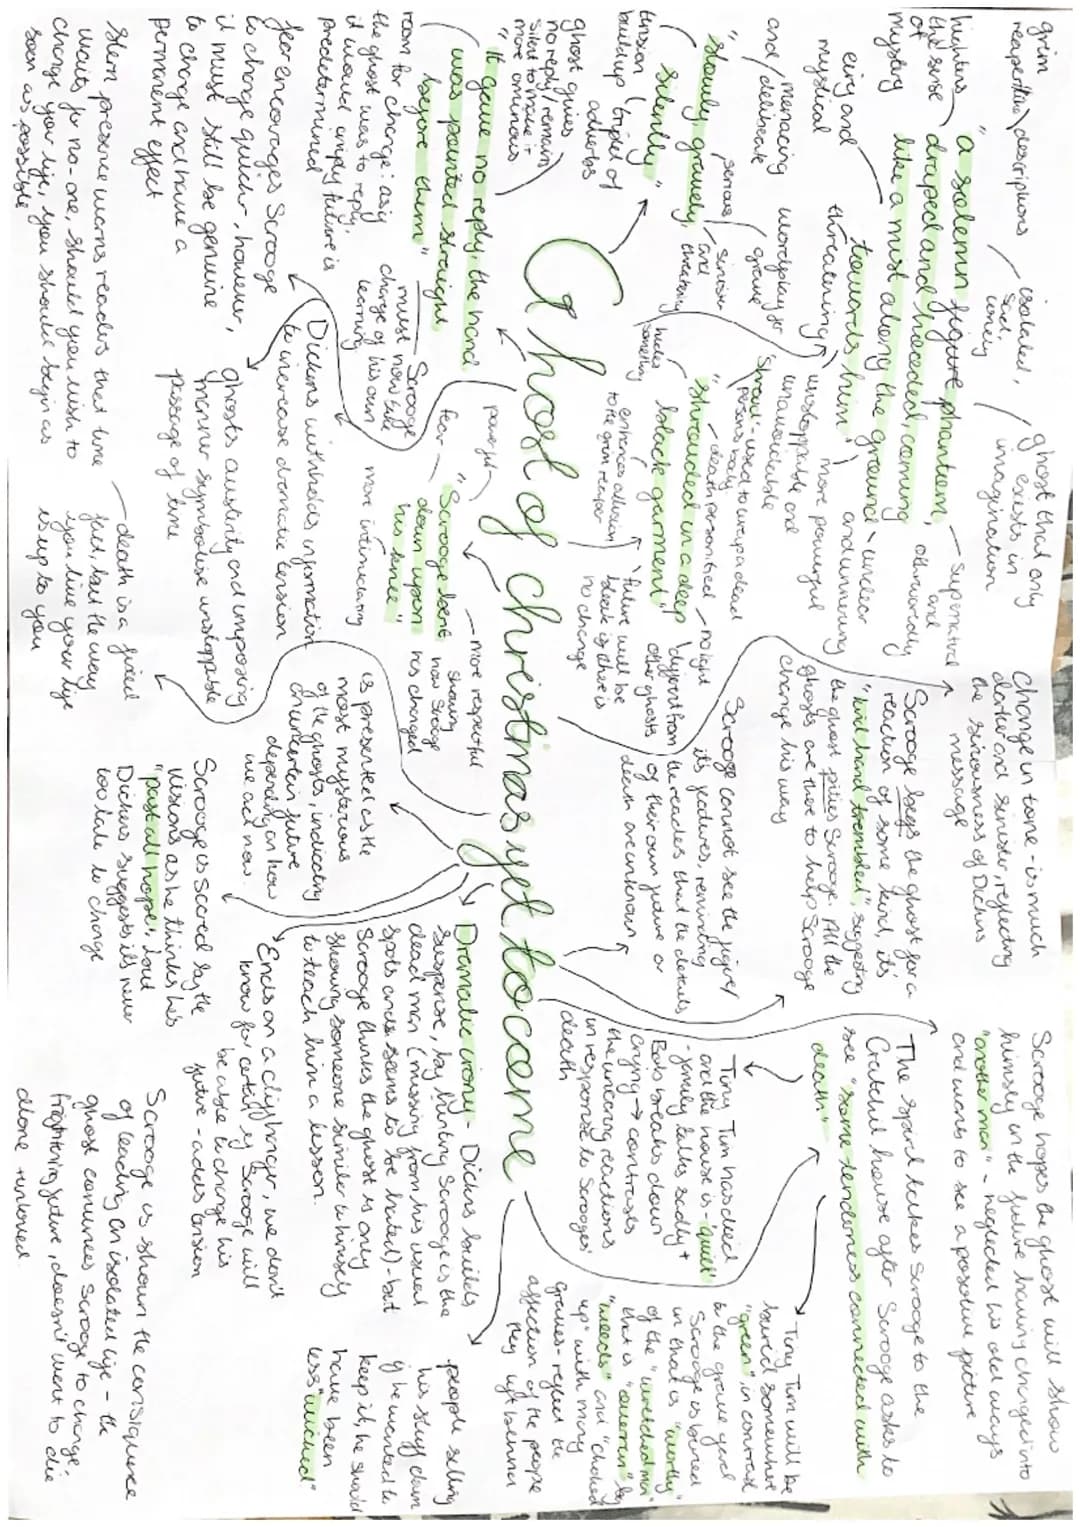 Ghost of christmas yet to come
grim
reaper like descriptions
hinters
the sense
of
mystery
"a solemn figure phantom,
draped and hooded, coming
like a mist along the ground
towards him"
isolated,
sad,
lonely
ghost that only
exists in
imagination
supernatural
and
otherwordly
eiry and
mystical
threatening
- unclear
and unnerving
more powerful
unstoppable and
unavoidable
menacing
and deliberate
wordplay for
grave
"slowly, gravely,
silently"
serious
sinister
and
threatening
tension
buildup
(triplet of
adverbs
ghost gives
no reply/remain
silent to make it
more ominous
"it gave no reply, the hand
was pointed straight
before them"
room for change: as if
the ghost was to reply,
it would imply future is
predetermined
Scrooge
must now take
charge of his own
learning
fear encourages Scrooge
to change quicker, however,
it must still be genuine
to change and have a
permanent effect
Stern presence warns readers that time
waits for no-one, should you wish to
change your life, you should begin as
soon as possible
Dickens withholds information
to increase dramatic tension
ghosts austerity and imposing
manner symbolise unstoppable
passage of time
- death is a fixed
fact, but the way
you live your life
is up to you
hides
something
"shrouded in a deep
black garment"
- death personified
'Shroud' used to wrap a dead
persons body
enhances allusion
to the grim reaper
- no light
different from
other ghosts
future will be
bleak if there is
no change
powerful
fear
"Scrooge bent
down upon
his knee"
more intimidating
- more respectful
showing
how Scrooge
has changed
is presented as the
most mysterious
of the ghosts, indicating
an uncertain future
depending on how
we act now.
Scrooge is scared by the
visions as he thinks he's
"past all hope", but
Dickens suggests it's never
too late to change
Change in tone - is much
darker and sinister, reflecting
the seriousness of Dickens
message
Scrooge begs the ghost for a
reaction of some kind, its
"kind hand trembled", suggesting
the ghost pities Scrooge. All the
ghosts are there to help Scrooge
change his way
Scrooge cannot see the figure/
its features, reminding
the readers that the details
of their own future or
death are unknown
Scrooge hopes the ghost will show
himself in the future having changed into
"another man" - neglected his old ways
and wants to see a positive picture
The spirit takes Scrooge to the
Cratchit house after Scrooge asks to
see "some tenderness connected with
death"
Tiny Tim has died
and the house is "quiet"
- family talks sadly +
Bob breaks down
crying → contrasts
the uncaring reactions
in response to Scrooges'
death
Tiny Tim will be
buried somewhere
"green", in contrast
to the grave yard
Scrooge is buried
in that is "worthy"
of the "wretched man"
that is "overrun" by
"weeds" and "choked
up" with many
graves - reflect the
affection of the people
they left behind
Dramatic irony - Dickens builds
suspense, by hinting Scrooge is the
dead man (missing from his usual
spots and seems to be hated) - but
Scrooge thinks the ghost is only
showing someone similar to himself
to teach him a lesson.
Ends on a cliffhanger, we don't
know for certain if Scrooge will
be able to change his
future - adds tension
people selling
his stuff claim
if he wanted to
keep it, he should
have been
less "wicked"
Scrooge is shown the consequence
of leading an isolated life - the
ghost convinces Scrooge to change:
frightening future, doesn't want to die
alone + unloved.